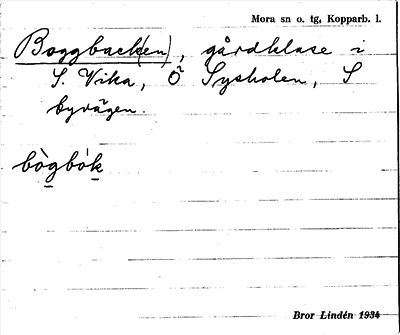 Mora sn o. tg, Kopparb. l.
Boggback(en), gårdklase i
S. Vika, Ö Sysholen, S
byvägen.
bògbók
Bror Lindén 1934